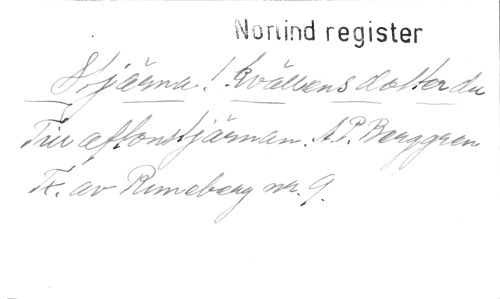 Norlind register
Stjärna! Kvällens dotter du
Till aftonstjärnan. A.P. Berggren
Tx. av Runeberg nr. 9.